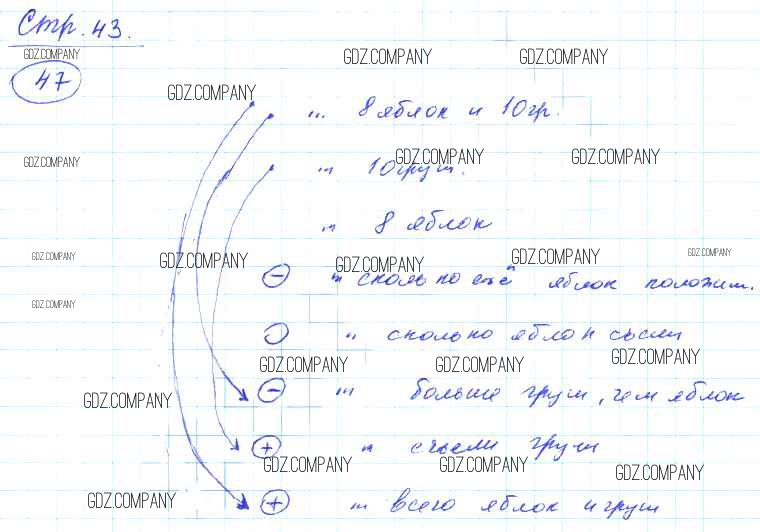 Стр. 43.
GDZ.COMPANY GDZ.COMPANY GDZ.COMPANY
47
GDZ.COMPANY
„ 8 яблок и 10 гр.
GDZ.COMPANY GDZ.COMPANY GDZ.COMPANY
„ 10 груш.
„ 8 яблок
GDZ.COMPANY GDZ.COMPANY GDZ.COMPANY GDZ.COMPANY GDZ.COMPANY
− „ сколько ещё яблок положим.
GDZ.COMPANY
„ сколько яблок съели
GDZ.COMPANY GDZ.COMPANY GDZ.COMPANY
− „ больше груш, чем яблок
GDZ.COMPANY
+ „ съели груши
GDZ.COMPANY GDZ.COMPANY GDZ.COMPANY
+ „ всего яблок и груш
GDZ.COMPANY